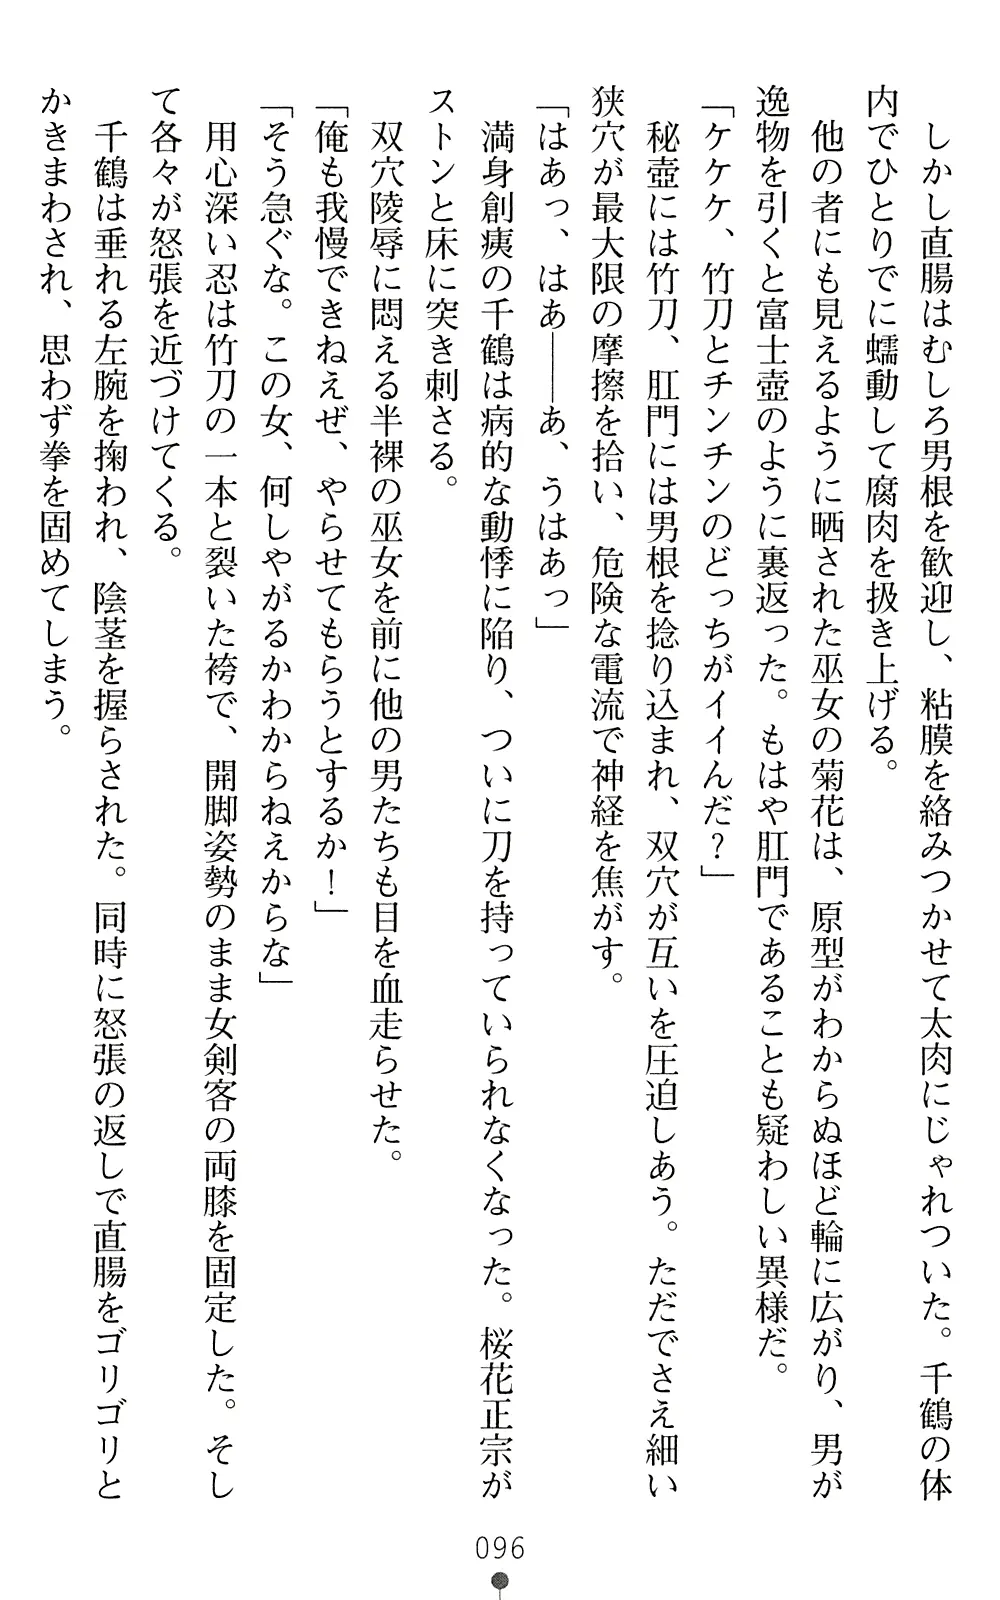 しかし直腸はむしろ男根を歓迎し、粘膜を絡みつかせて太肉にじゃれついた。千鶴の体
内でひとりでに蠕動して腐肉を扱き上げる。
他の者にも見えるように晒された巫女の菊花は、原型がわからぬほど輪に広がり、男が
逸物を引くと富士壺のように裏返った。もはや肛門であることも疑わしい異様だ。
「ケケケ、竹刀とチンチンのどっちがイイんだ？」
秘壺には竹刀、肛門には男根を捻り込まれ、双穴が互いを圧迫しあう。ただでさえ細い
狭穴が最大限の摩擦を拾い、危険な電流で神経を焦がす。
「はあっ、はあ――あ、うはあっ」
満身創痍の千鶴は病的な動悸に陥り、ついに刀を持っていられなくなった。桜花正宗が
ストンと床に突き刺さる。
双穴陵辱に悶える半裸の巫女を前に他の男たちも目を血走らせた。
「俺も我慢できねえぜ、やらせてもらうとするか！」
「そう急ぐな。この女、何しやがるかわからねえからな」
用心深い忍は竹刀の一本と裂いた袴で、開脚姿勢のまま女剣客の両膝を固定した。そし
て各々が怒張を近づけてくる。
千鶴は垂れる左腕を掬われ、陰茎を握らされた。同時に怒張の返しで直腸をゴリゴリと
かきまわされ、思わず拳を固めてしまう。
096